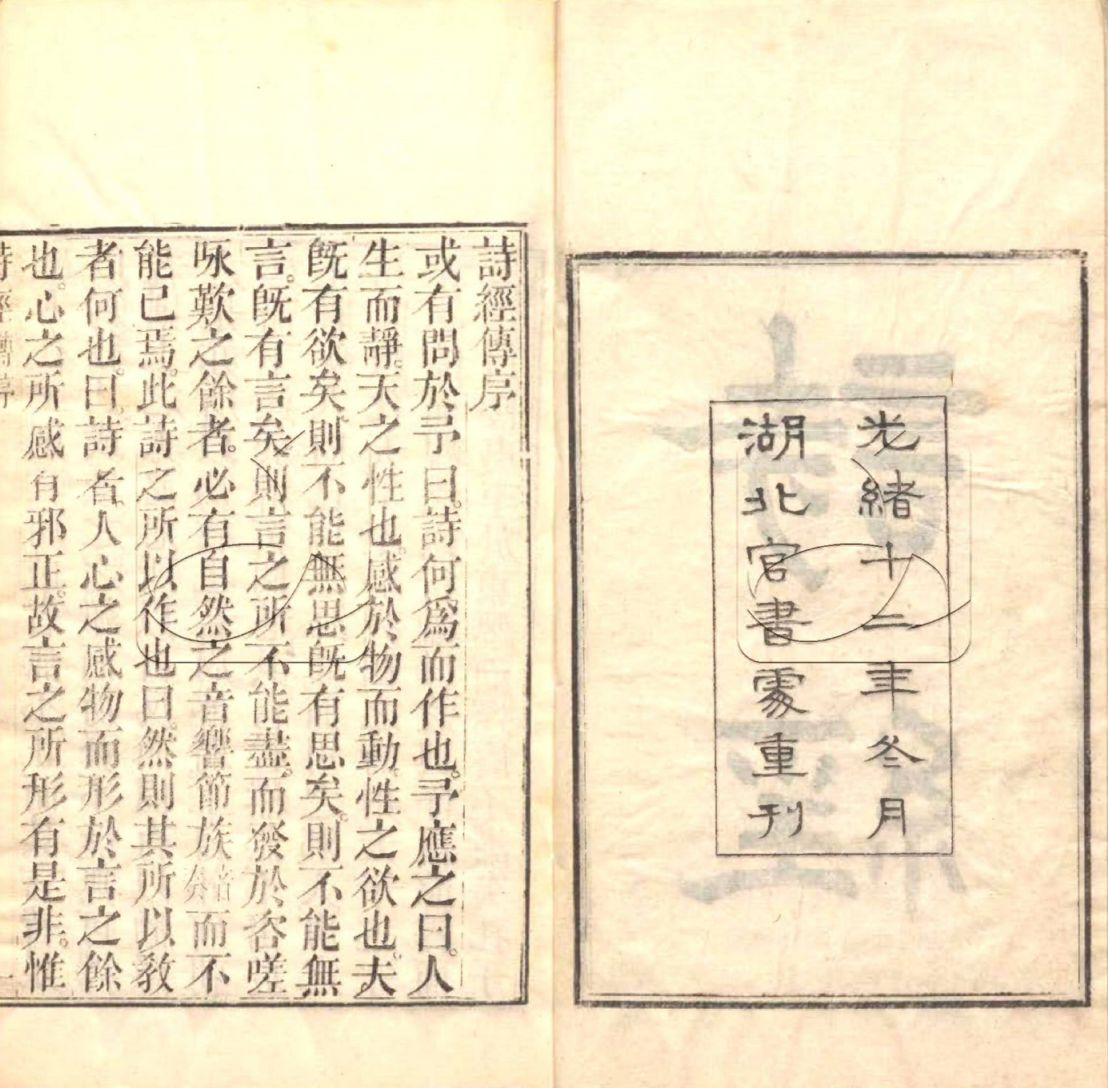 光緒十二年冬月
湖北官書處重刊
詩經傳序
或有問於予曰。詩何爲而作也。予應之曰。人
生而靜。天之性也。感於物而動。性之欲也。夫
旣有欲矣。則不能無思。旣有思矣。則不能無
言。旣有言矣。則言之所不能盡。而發於咨嗟
咏歎之餘者。必有自然之音響節族。而不
能已焉。此詩之所以作也。曰。然則其所以敎
者何也。曰。詩者。人心之感物而形於言之餘
也。心之所感有邪正。故言之所形有是非。惟
詩經傳序 一